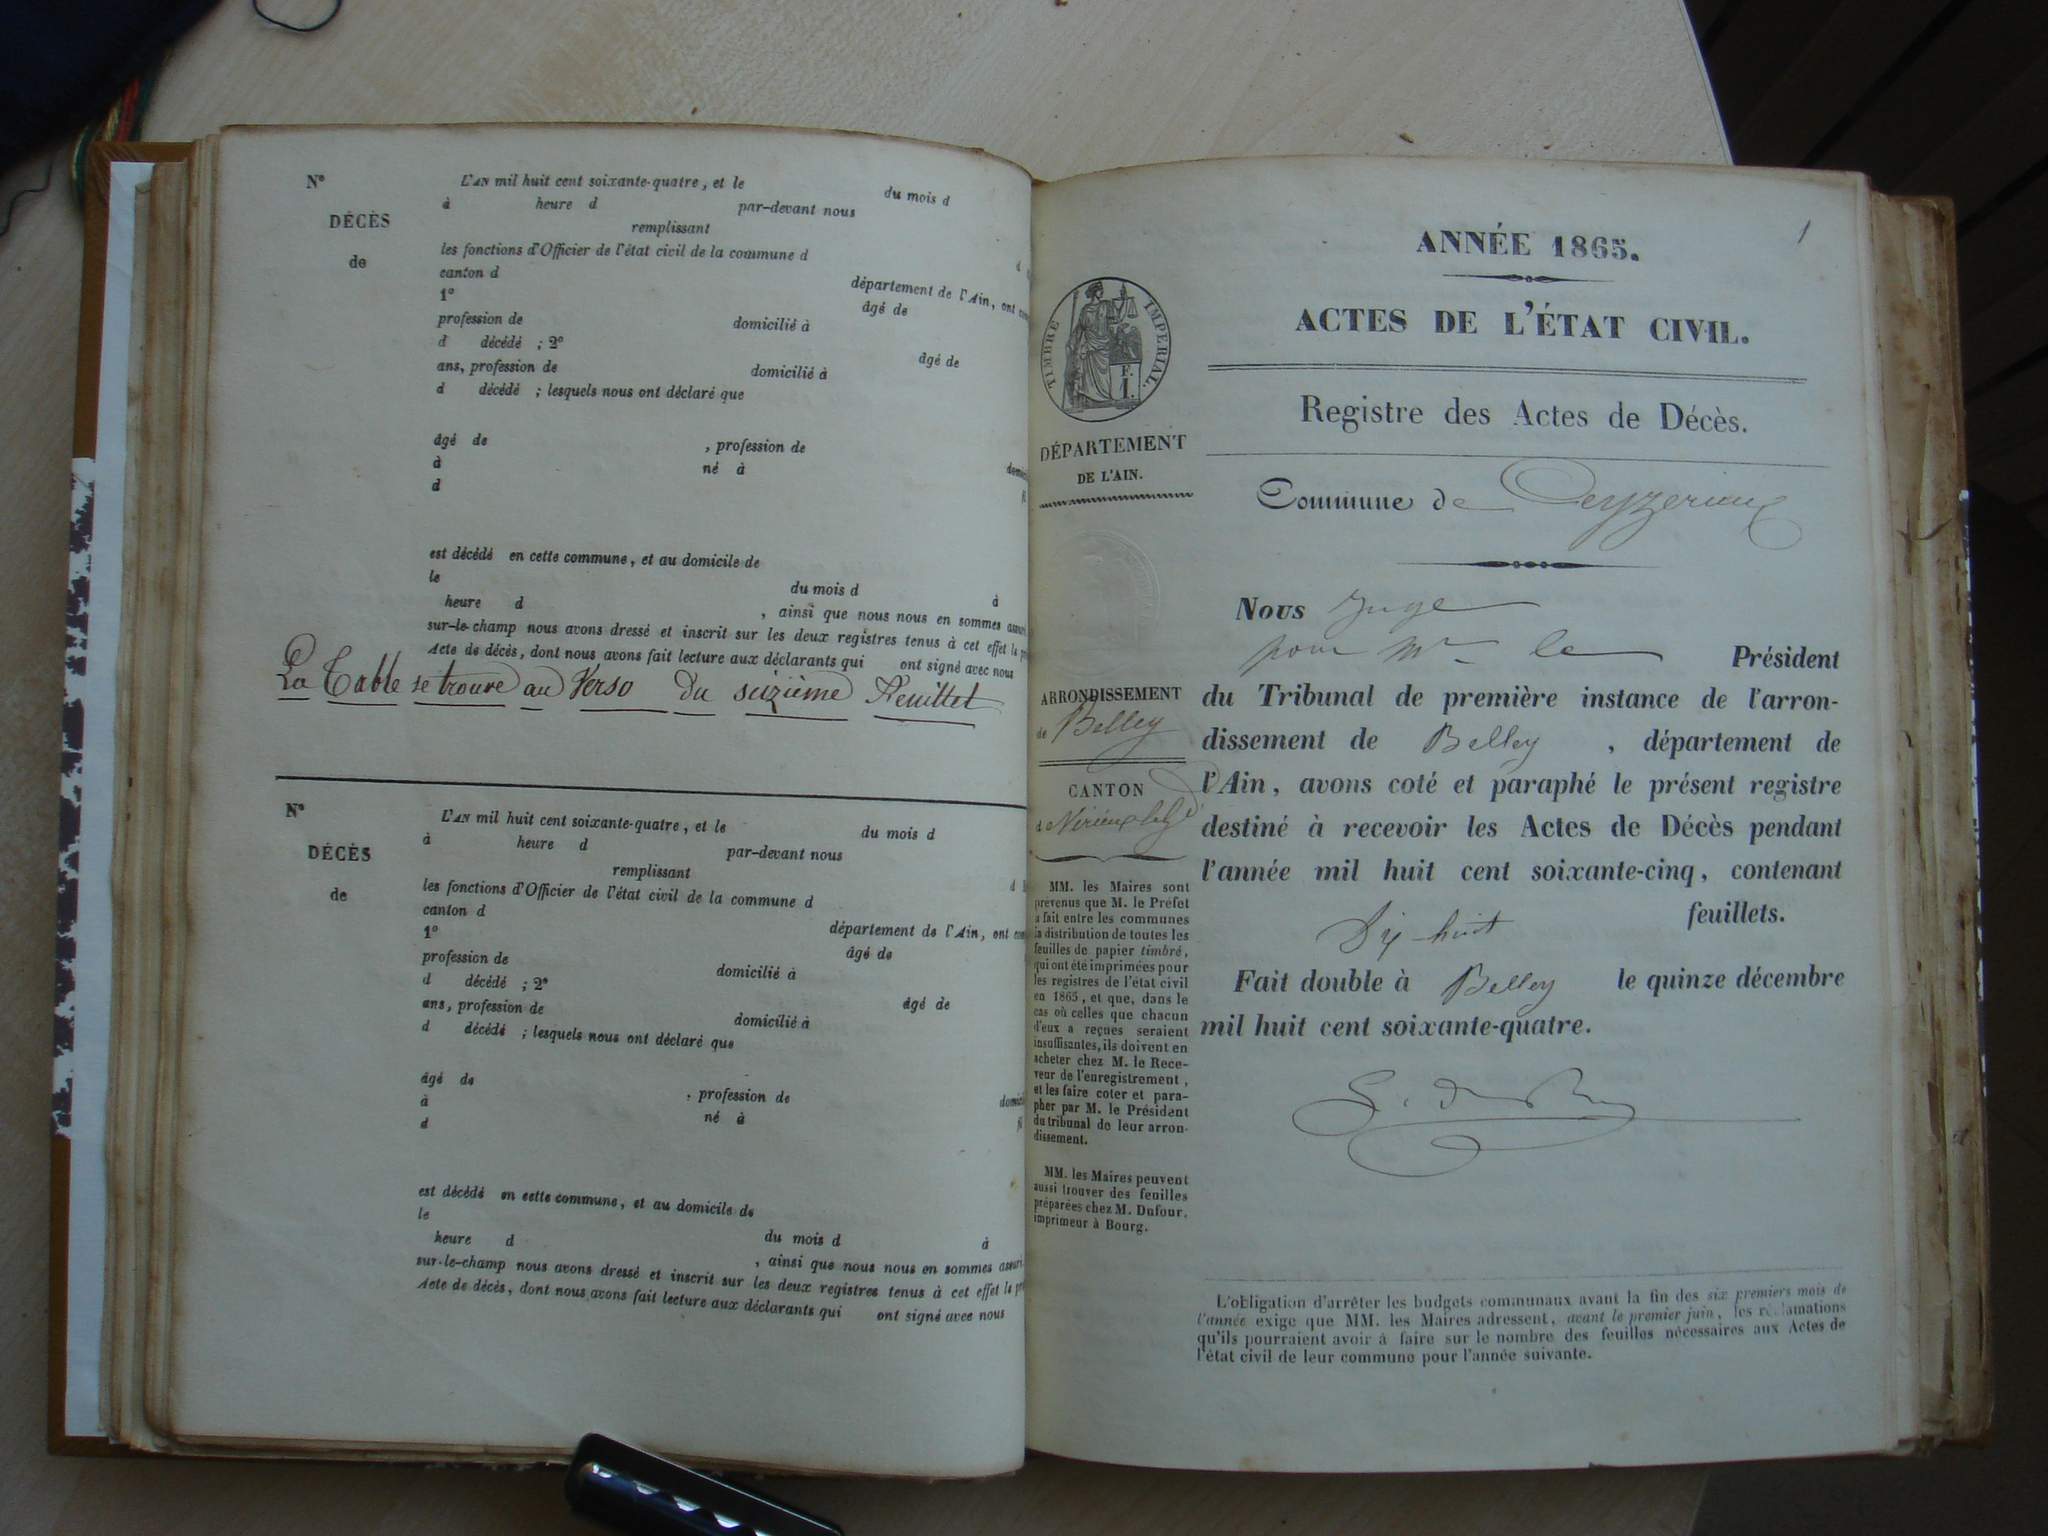 N°
DÉCÈS
de
L'AN mil huit cent soixante-quatre, et le du mois d
à heure d par-devant nous
remplissant
les fonctions d'Officier de l'état civil de la commune d d
canton d département de l'Ain, ont
1° âgé de
profession de domicilié à
d décédé ; 2° âgé de
ans, profession de domicilié à
d décédé ; lesquels nous ont déclaré que
âgé de , profession de
à né à
d
est décédé en cette commune, et au domicile de
le du mois d à
heure d , ainsi que nous nous en sommes
sur-le-champ nous avons dressé et inscrit sur les deux registres tenus à cet effet le
Acte de décès, dont nous avons fait lecture aux déclarants qui ont signé avec nous
La Table se trouve au Verso du seizième Feuillet
N°
DÉCÈS
de
L'AN mil huit cent soixante-quatre, et le du mois d
à heure d par-devant nous
remplissant
les fonctions d'Officier de l'état civil de la commune d d
canton d département de l'Ain, ont
1° âgé de
profession de domicilié à
d décédé ; 2° âgé de
ans, profession de domicilié à
d décédé ; lesquels nous ont déclaré que
âgé de , profession de
à né à
d
est décédé en cette commune, et au domicile de
le du mois d à
heure d , ainsi que nous nous en sommes
sur-le-champ nous avons dressé et inscrit sur les deux registres tenus à cet effet le
Acte de décès, dont nous avons fait lecture aux déclarants qui ont signé avec nous
1
TIMBRE IMPÉRIAL.
DÉPARTEMENT
DE L'AIN.
ARRONDISSEMENT
de Belley
CANTON
d
MM. les Maires sont
prévenus que M. le Préfet
a fait entre les communes
la distribution de toutes les
feuilles de papier timbré,
qui ont été imprimées pour
les registres de l'état civil
en 1865, et que, dans le
cas où celles que chacun
d'eux a reçues seraient
insuffisantes, ils doivent en
acheter chez M. le Rece-
veur de l'enregistrement,
et les faire coter et para-
pher par M. le Président
du tribunal de leur arron-
dissement.
MM. les Maires peuvent
aussi trouver des feuilles
préparées chez M. Dufour,
imprimeur à Bourg.
ANNÉE 1865.
ACTES DE L'ÉTAT CIVIL.
Registre des Actes de Décès.
Commune de Ceyzerieux
Nous Juge
pour Mr le Président
du Tribunal de première instance de l'arron-
dissement de Belley , département de
l'Ain, avons coté et paraphé le présent registre
destiné à recevoir les Actes de Décès pendant
l'année mil huit cent soixante-cinq, contenant
Dix-huit feuillets.
Fait double à Belley le quinze décembre
mil huit cent soixante-quatre.
L'obligation d'arrêter les budgets communaux avant la fin des six premiers mois de
l'année exige que MM. les Maires adressent, avant le premier juin, les réclamations
qu'ils pourraient avoir à faire sur le nombre des feuilles nécessaires aux Actes de
l'état civil de leur commune pour l'année suivante.